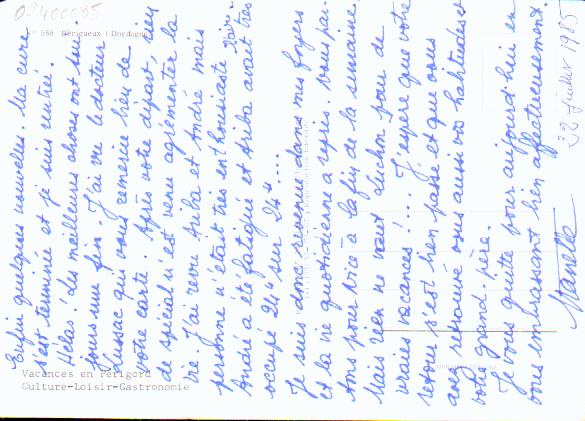 02400035
N° 568 Périgueux (Dordogne)
Enfin quelques nouvelles. Ma cure
s'est terminée et je suis rentré.
Hélas ! les meilleures choses ont tou-
jours une fin. J'ai vu le docteur
Lussac qui vous remercie bien de
votre carte. Après votre départ, rien
de spécial n'est venu agrémenter la
vie. J'ai revu Ariba et André mais
personne n'était très enthousiaste
André a été fatigué et Ariba avait très
occupé 24h sur 24h....
Je suis donc revenu dans mes foyers
et la vie quotidienne a repris. Nous par-
tons pour Nice à la fin de la semaine
Mais rien ne vaut Luchon pour de
vraies vacances !... J'espère que votre
retour s'est bien passé et que vous
avez retrouvé vous aussi vos habitudes et
votre grand-père.
Je vous quitte pour aujourd'hui en
vous embrassant bien affectueusement.
juillet 1985
Vacances en Périgord
Culture-Loisir-Gastronomie